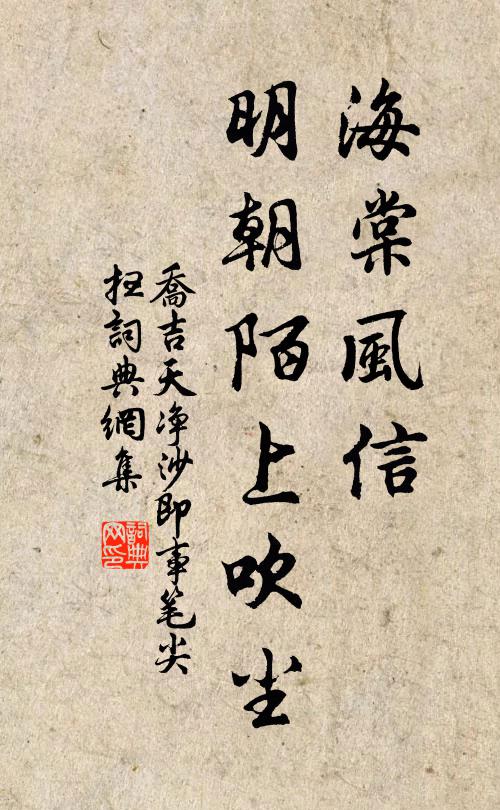 海棠風信
明朝陌上吹尘
喬吉天净沙即事笔尖
扫詞典網集
詞典网印